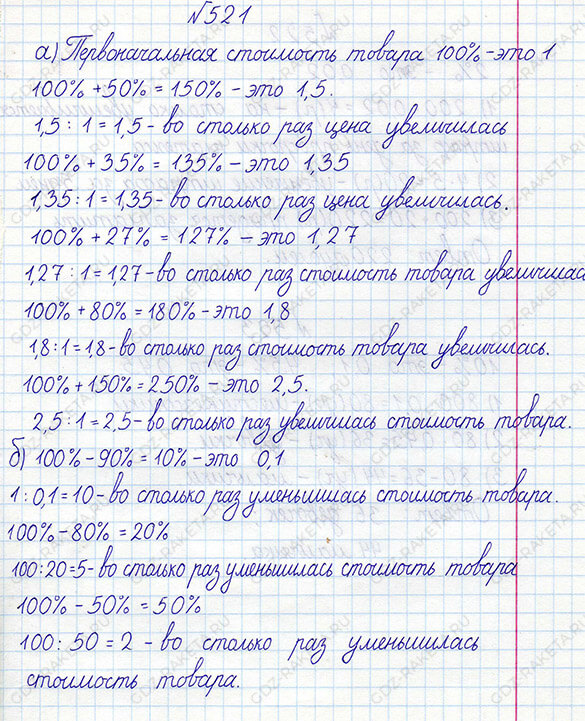 №521
а) Первоначальная стоимость товара 100% - это 1
100% + 50% = 150% - это 1,5.
1,5 : 1 = 1,5 - во столько раз цена увеличилась
100% + 35% = 135% - это 1,35
1,35 : 1 = 1,35 - во столько раз цена увеличилась.
100% + 27% = 127% - это 1,27
1,27 : 1 = 1,27 - во столько раз стоимость товара увеличилас
100% + 80% = 180% - это 1,8
1,8 : 1 = 1,8 - во столько раз стоимость товара увеличилась.
100% + 150% = 250% - это 2,5.
2,5 : 1 = 2,5 - во столько раз увеличилась стоимость товара.
б) 100% - 90% = 10% - это 0,1
1 : 0,1 = 10 - во столько раз уменьшилась стоимость товара.
100% - 80% = 20%
100 : 20 = 5 - во столько раз уменьшилась стоимость товара
100% - 50% = 50%
100 : 50 = 2 - во столько раз уменьшилась
стоимость товара.